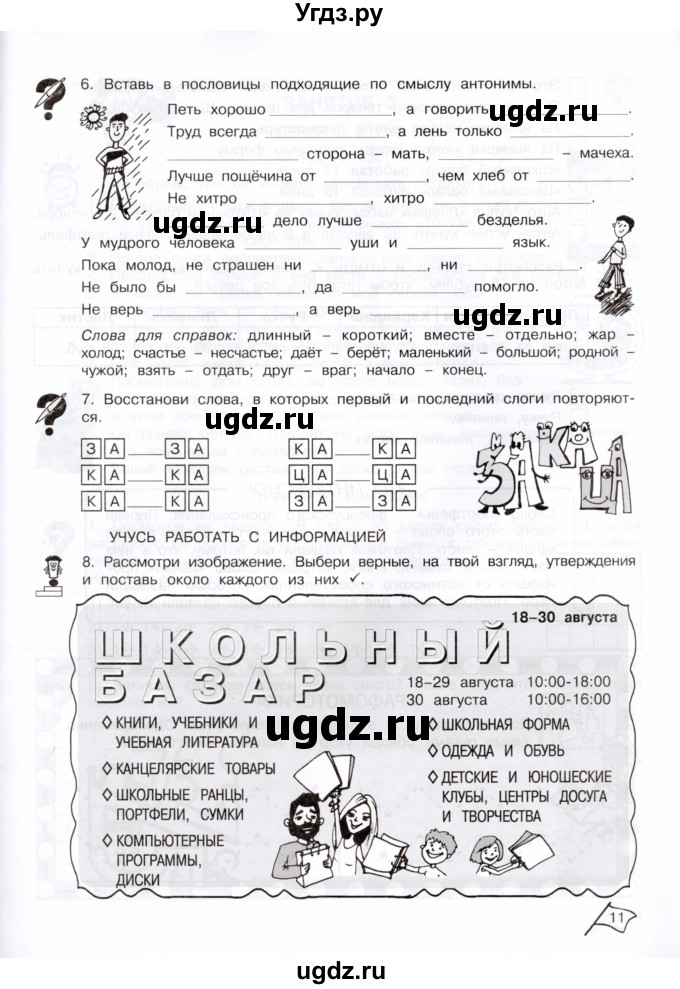 Угдз.ру
6. Вставь в пословицы подходящие по смыслу антонимы.
Петь хорошо ____________, а говорить ____________.
Труд всегда ____________, а лень только ____________.
____________ сторона – мать, ____________ – мачеха.
Лучше пощёчина от ____________, чем хлеб от ____________.
Не хитро ____________, хитро ____________.
____________ дело лучше ____________ безделья.
У мудрого человека ____________ уши и ____________ язык.
Пока молод, не страшен ни ____________, ни ____________.
Не было бы ____________, да ____________ помогло.
Не верь ____________, а верь ____________.
Слова для справок: длинный – короткий; вместе – отдельно; жар –
холод; счастье – несчастье; даёт – берёт; маленький – большой; родной –
чужой; взять – отдать; друг – враг; начало – конец.
7. Восстанови слова, в которых первый и последний слоги повторяют-
ся.
ЗА КА ЦА
ЗА — ЗА КА — КА
КА — ЗА ЦА — ЦА
КА — КА ЗА — ЗА
УЧУСЬ РАБОТАТЬ С ИНФОРМАЦИЕЙ
8. Рассмотри изображение. Выбери верные, на твой взгляд, утверждения
и поставь около каждого из них ✓.
18–30 августа
ШКОЛЬНЫЙ
БАЗАР
18–29 августа 10:00-18:00
30 августа 10:00-16:00
◊ КНИГИ, УЧЕБНИКИ И
УЧЕБНАЯ ЛИТЕРАТУРА
◊ КАНЦЕЛЯРСКИЕ ТОВАРЫ
◊ ШКОЛЬНЫЕ РАНЦЫ,
ПОРТФЕЛИ, СУМКИ
◊ КОМПЬЮТЕРНЫЕ
ПРОГРАММЫ,
ДИСКИ
◊ ШКОЛЬНАЯ ФОРМА
◊ ОДЕЖДА И ОБУВЬ
◊ ДЕТСКИЕ И ЮНОШЕСКИЕ
КЛУБЫ, ЦЕНТРЫ ДОСУГА
И ТВОРЧЕСТВА
11
ugdz.ru
ugdz.ru
ugdz.ru
ugdz.ru
ugdz.ru
ugdz.ru
ugdz.ru